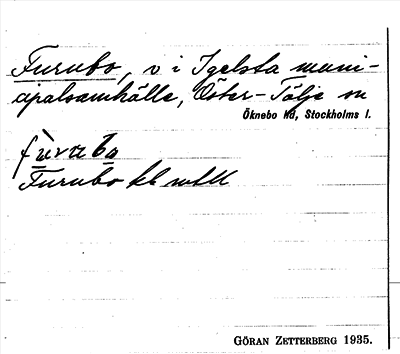 Furubo, v i Igelsta muni-
cipalsamhälle, Öster-Tälje sn
Öknebo hd, Stockholms l.
fùruba
Furubo kb
GÖRAN ZETTERBERG 1935.